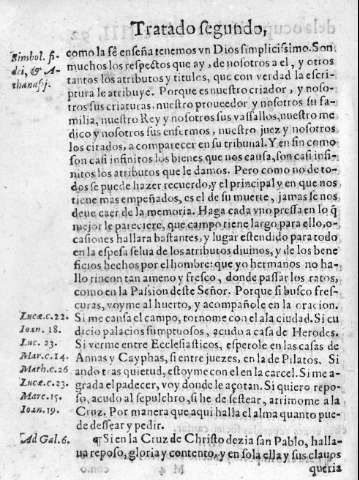 Tratado segundo,
Simbol. fi-
dei, & A-
thanasij.
como la fè enseña tenemos vn Dios simplicissimo. Son
muchos los respectos que ay, de nosotros a el, y otros
tantos los atributos y titules, que con verdad la escri-
ptura le atribuye. Porque es nuestro criador, y noso-
tros sus criaturas. nuestro proueedor y nosotros su fa-
milia, nuestro Rey y nosotros sus vassallos, nuestro me
dico y nosotros sus enfermos, nuestro juez y nosotros
los citados, a comparecer en su tribunal. Y en fin como
son casi infinitos los bienes que nos causa, son casi infi-
nitos los atributos que le damos. Pero como no de to-
dos se puede hazer recuerdo, y el principal y en que nos
tiene mas empeñados, es el de su muerte, jamas se nos
deue caer de la memoria. Haga cada vno pressa en lo q̃
mejor le pareciere, que campo tiene largo para ello, o-
casiones hallara bastantes, y lugar estendido para todo
en la espesa selua de los atributos diuinos, y de los bene
ficios hechos por el hombre: que yo hermanos no ha-
llo rincon tan ameno y fresco, donde passar los ratos,
como en la Passion deste Señor. Porque si busco fres-
curas, voyme al huerto, y acompañole en la oracion.
Lucæ. c. 22.
Ioan. 18.
Luc. 23.
Mar. c. 14.
Math. c. 26
Lucæ. c. 23.
Marc. 15.
Ioan. 19.
Si me cansa el campo, tornome con el a la ciudad. Si cu
dicio palacios sumptuosos, acudo a casa de Herodes.
Si verme entre Ecclesiasticos, esperole en las casas de
Annas y Cayphas, si entre juezes, en la de Pilatos. Si
ando tras quietud, estoyme con el en la carcel. Si me a-
grada el padecer, voy donde le açotan. Si quiero repo-
so, acudo al sepulchro, si he de sestear, arrimome a la
Cruz. Por manera que aqui halla el alma quanto pue-
de dessear y pedir.
Ad Gal. 6.
¶ Si en la Cruz de Christo dezia san Pablo, halla-
ua reposo, gloria y contento, y en sola ella y sus clauos
queria